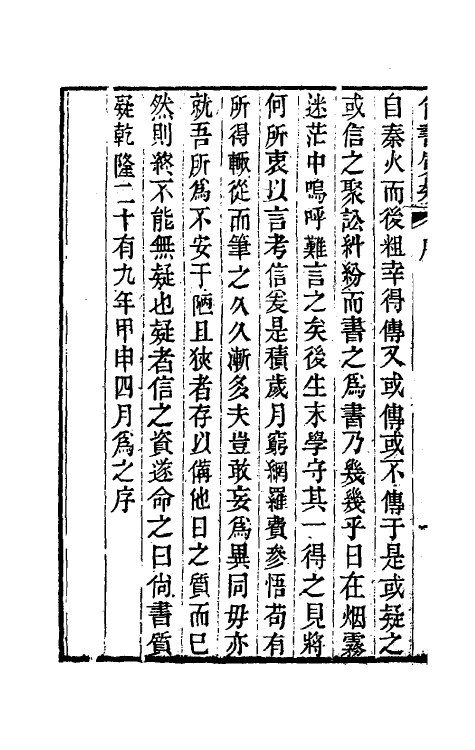 自秦火而後粗幸得傳又或傳或不傳于是或疑之
或信之聚訟糾紛而書之爲書乃幾幾乎日在烟霧
迷茫中嗚呼難言之矣後生末學守其一得之見將
何所衷以言考信爰是積歲月窮網羅費參悟苟有
所得輒從而筆之久久漸多夫豈敢妄爲異同毋亦
就吾所爲不安于陋且狹者存以備他日之質而已
然則終不能無疑也疑者信之資遂命之曰尙書質
疑乾隆二十有九年甲申四月爲之序